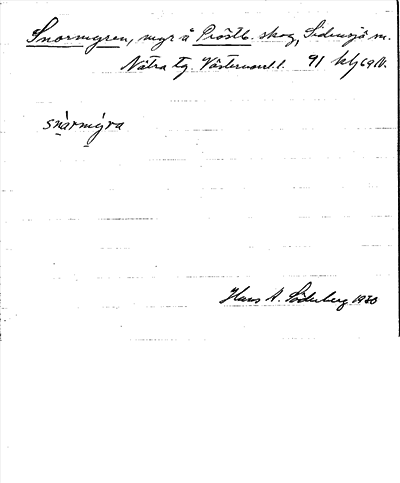 Snormyren, myr å Prästb. skog, Sidensjö sn.
Nätra tg. Västernorrl. l.
snàrmýra
Hans A. Söderberg 1930